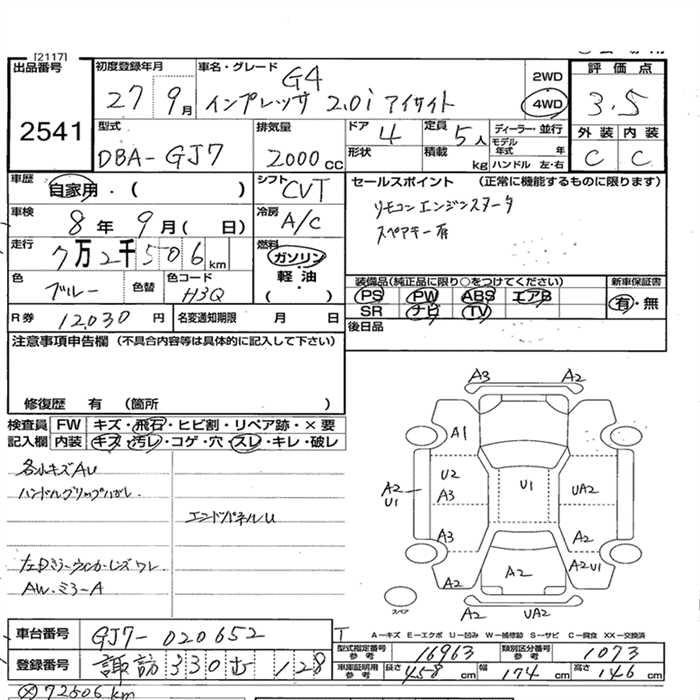 [2117]
出品番号
2541
初度登録年月
27 9月
車名・グレード
G4
インプレッサ 2.0i アイサイト
2WD
4WD
評価点
3.5
外装 内装
C C
型式
DBA-GJ7
排気量
2000cc
ドア 4
形状
定員 5人
積載 kg
ディーラー・並行
モデル年式 年
ハンドル 左・右
車歴
自家用・( )
シフト CVT
車検
8年 9月( 日)
冷房 A/C
走行
7万2千506km
燃料
ガソリン
軽・油
( )
色
ブルー
色替
色コード
H3Q
R券 12030円
名変通知期限 月 日
セールスポイント (正常に機能するものに限ります)
リモコンエンジンスタータ
スペアキー有
装備品(純正品に限り○をつけてください)
PS PW ABS エアB
SR ナビ TV
新車保証書
有・無
後日品
注意事項申告欄 (不具合内容等は具体的に記入して下さい)
修復歴 有 (箇所 )
検査員記入欄
FW キズ・飛石・ヒビ割・リペア跡・×要
内装 キズ・汚レ・コゲ・穴・スレ・キレ・破レ
各小キズAU
ハンドルグリップハガレ
エンドパネルU
左Dミラーウィンカーレンズワレ
AW・ミラーA
A3 A2
A1
U2
A3
U1
UA2
A2
U1
A3
A2
A2
A2U1
A2
A2
A2 UA2
スペア
A-キズ E-エクボ U-凹み W-補修跡 S-サビ C-腐食 XX-交換済
車台番号 GJ7-020652
登録番号 諏訪 330 む 128
型式指定番号 参考 16963
類別区分番号 参考 1073
車庫証明用 参考 長さ 458cm 幅 174cm 高さ 146cm
72506km